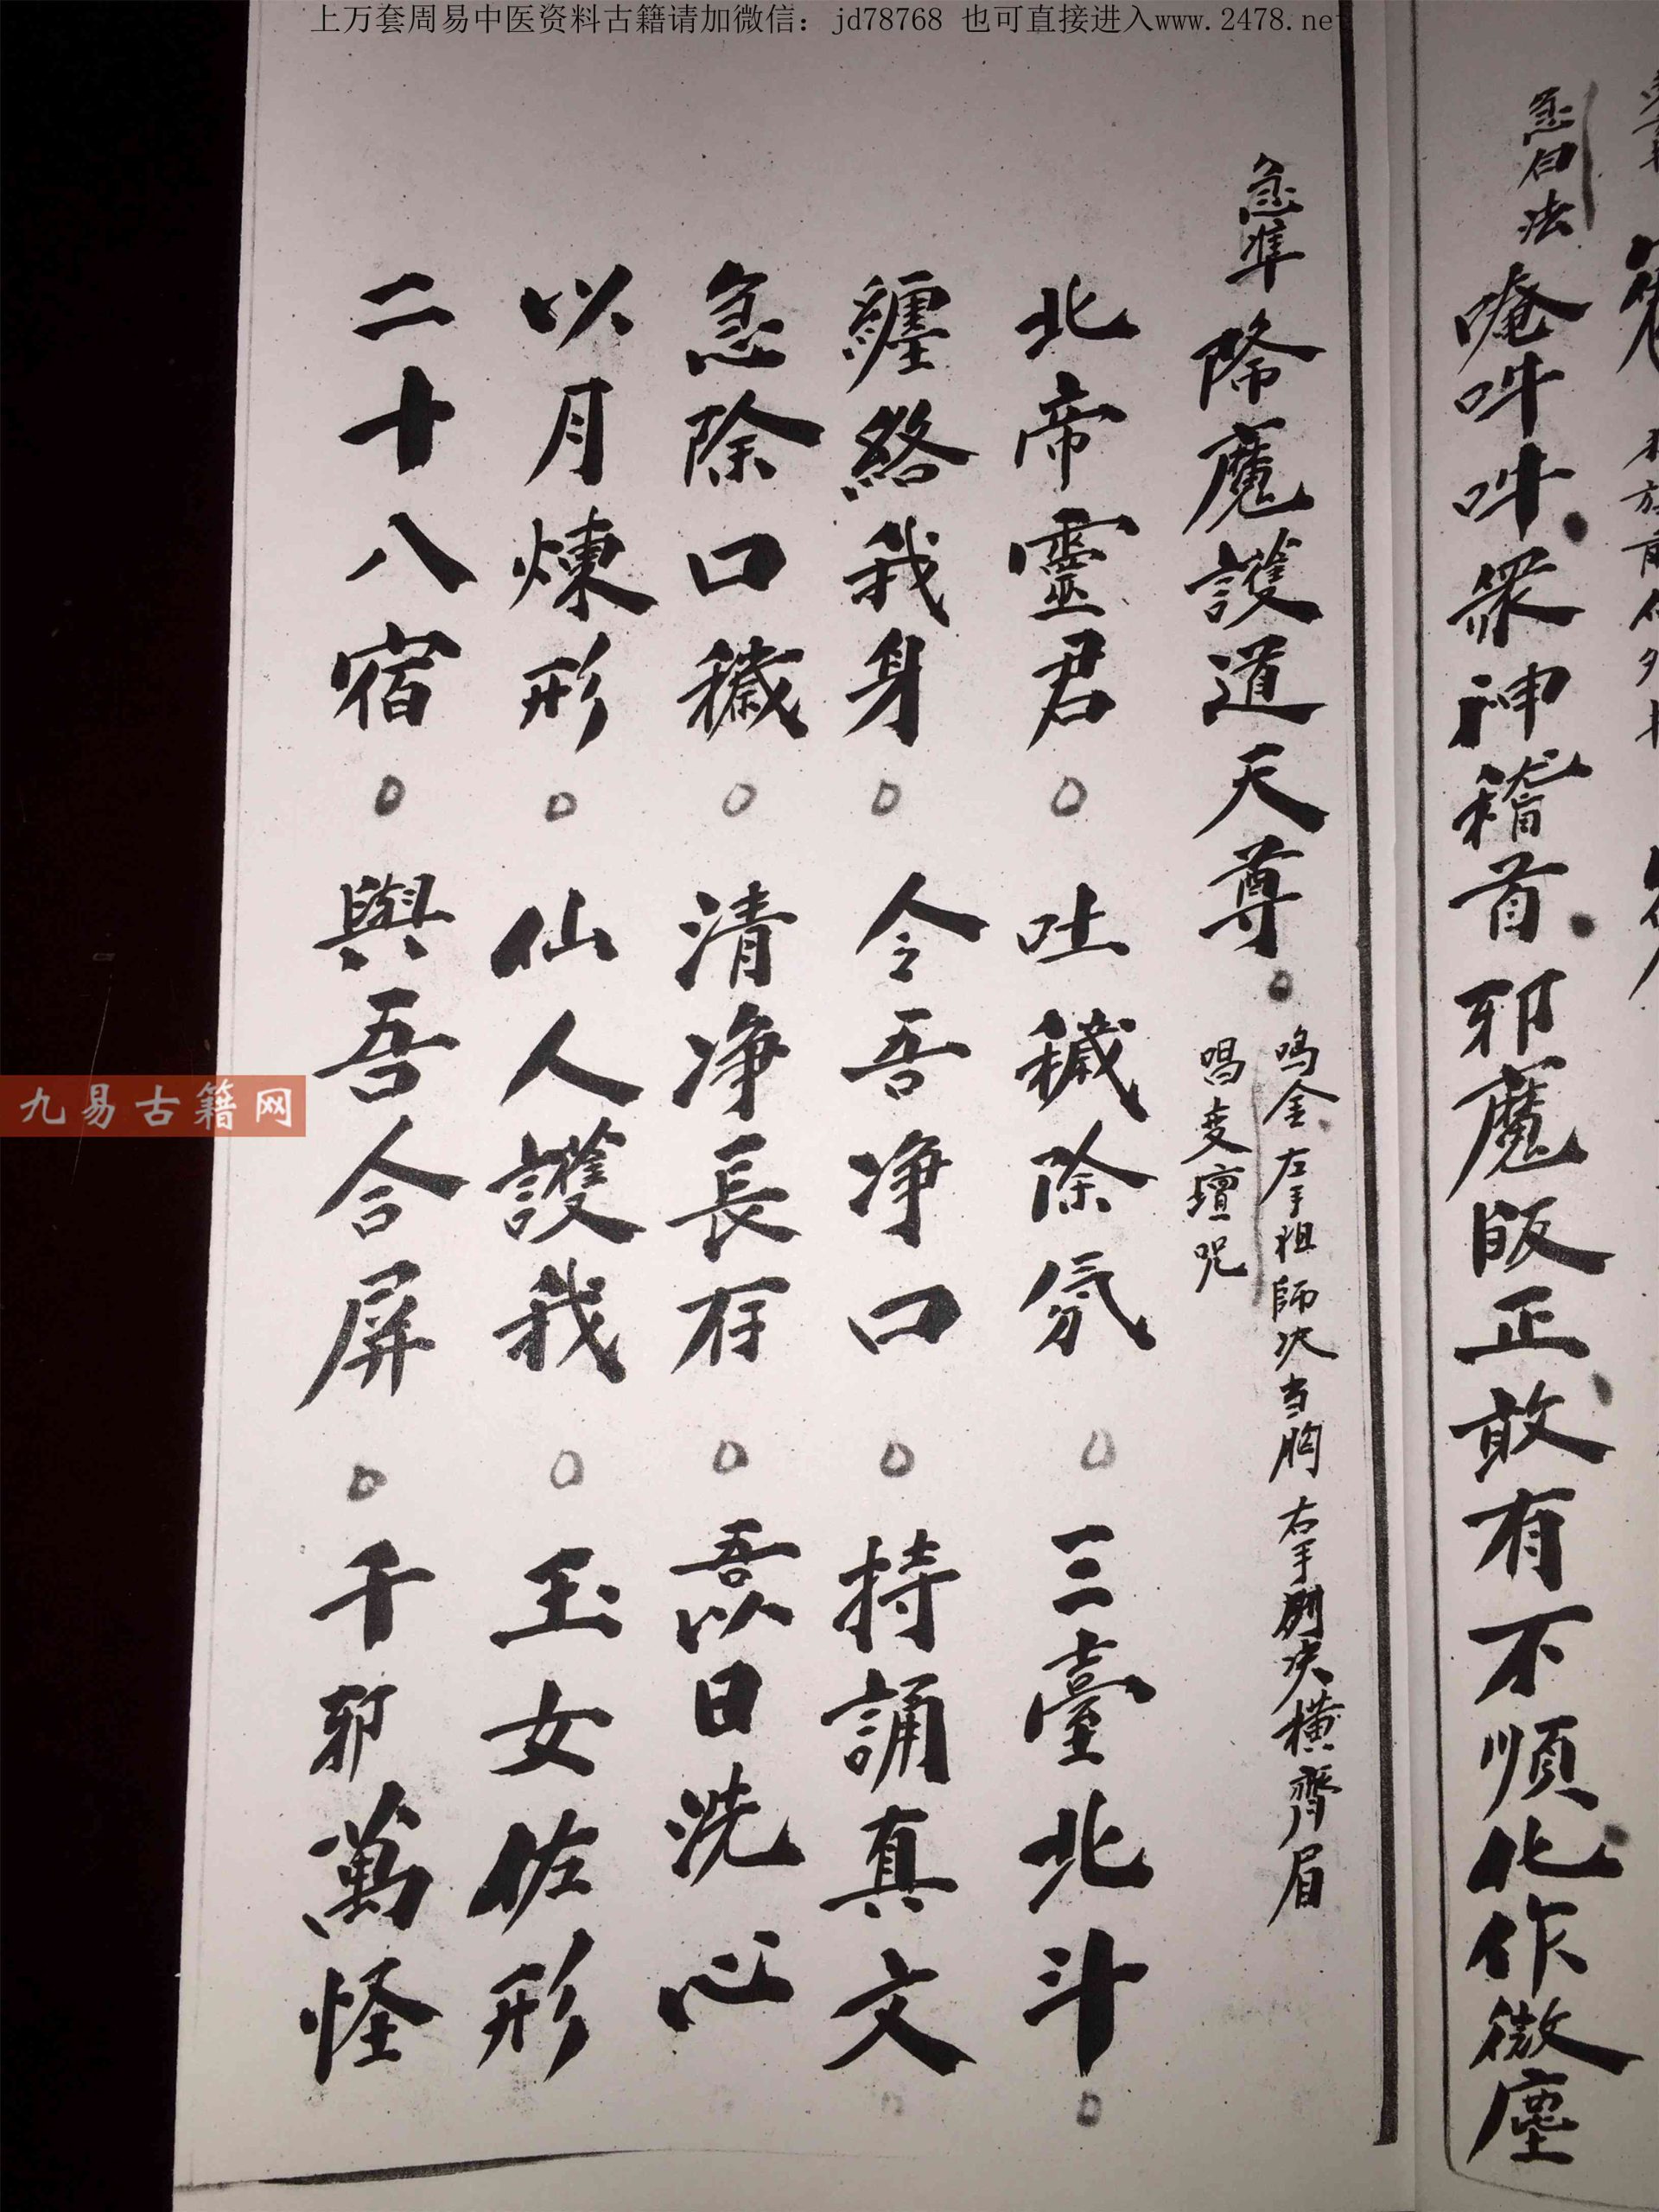 上万套周易中医资料古籍请加微信：jd78768 也可直接进入www.2478.ne
急白法 唵吽吽眾神稽首邪魔皈正敢有不順化作微塵
急準 降魔護道天尊。
鸣金左手祖師决当胸右手劍决横齊眉
唱变壇咒
北帝靈君。吐穢除氛。三臺北斗。
纏絡我身。令吾净口。持誦真文。
急除口穢。清净長存。吾以日洗心
以月煉形。仙人護我。玉女佐形
二十八宿。與吾合屏。千邪萬怪
九易古籍网